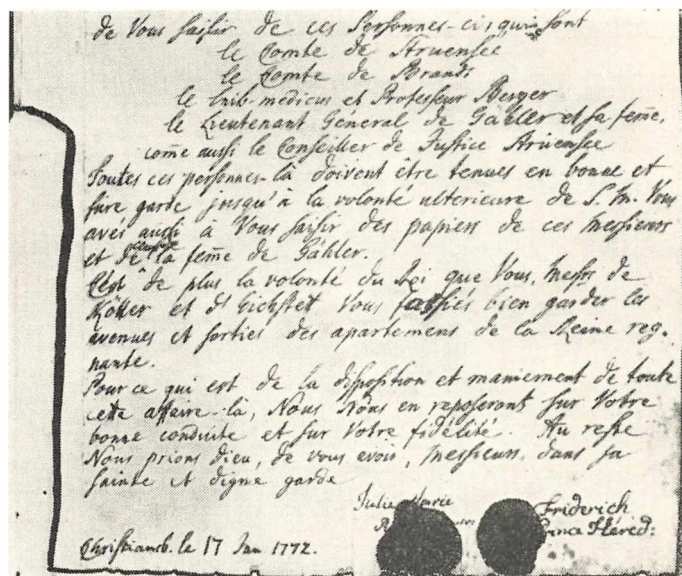 de Vous saisir de ces Personnes-ci, qui sont
le Comte de Struensée
le Comte de Brandt
le Leib-medicus et Professeur Berger
le Lieutenant Général de Gähler et sa feme,
come aussi le Conseiller de Justice Struensée
Toutes ces personnes-là doivent être tenues en bonne et
sûre garde jusqu'à la volonté ulterieure de S. M. Vous
avés aussi à Vous saisir des papiers de ces Messieurs
et de la feme de Gähler.
C'est de plus la volonté du Roi que Vous, Messrs de
Köller et d'Eichstet Vous fassiés bien garder les
avenues et sorties des apartemens de la Reine reg-
nante.
Pour ce qui est de la disposition et maniement de toute
cette affaire-là, Nous Nous en reposerons sur Votre
bonne conduite et sur Votre fidélité. Au reste
Nous prions Dieu, de vous avoir, Messieurs, dans sa
sainte et digne garde
Julie Marie
Friderich
Prince Héréd:
Christiansb. le 17 Jan 1772.